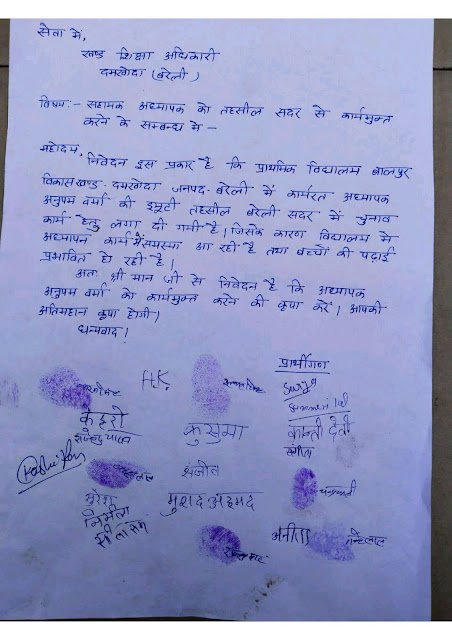 सेवा में,
खण्ड शिक्षा अधिकारी
दमखोदा (बरेली)
विषय:- सहायक अध्यापक को तहसील सदर से कार्यमुक्त
करने के सम्बन्ध में -
महोदय,
निवेदन इस प्रकार है कि प्राथमिक विद्यालय बालपुर
विकासखण्ड- दमखोदा जनपद- बरेली में कार्यरत अध्यापक
अनुपम वर्मा की ड्यूटी तहसील बरेली सदर में चुनाव
कार्य हेतु लगा दी गयी है। जिसके कारण विद्यालय में
अध्यापन कार्य में समस्या आ रही है तथा बच्चों की पढ़ाई
प्रभावित हो रही है।
अतः श्री मान जी से निवेदन है कि अध्यापक
अनुपम वर्मा को कार्यमुक्त करने की कृपा करें। आपकी
अतिमहान कृपा होगी।
धन्यवाद!
प्रार्थीगण
H.K.
कुसुमा
कान्ती देवी
संगीता
मुरशद अहमद
सुरेश
निर्मला
सीताराम
अनीता